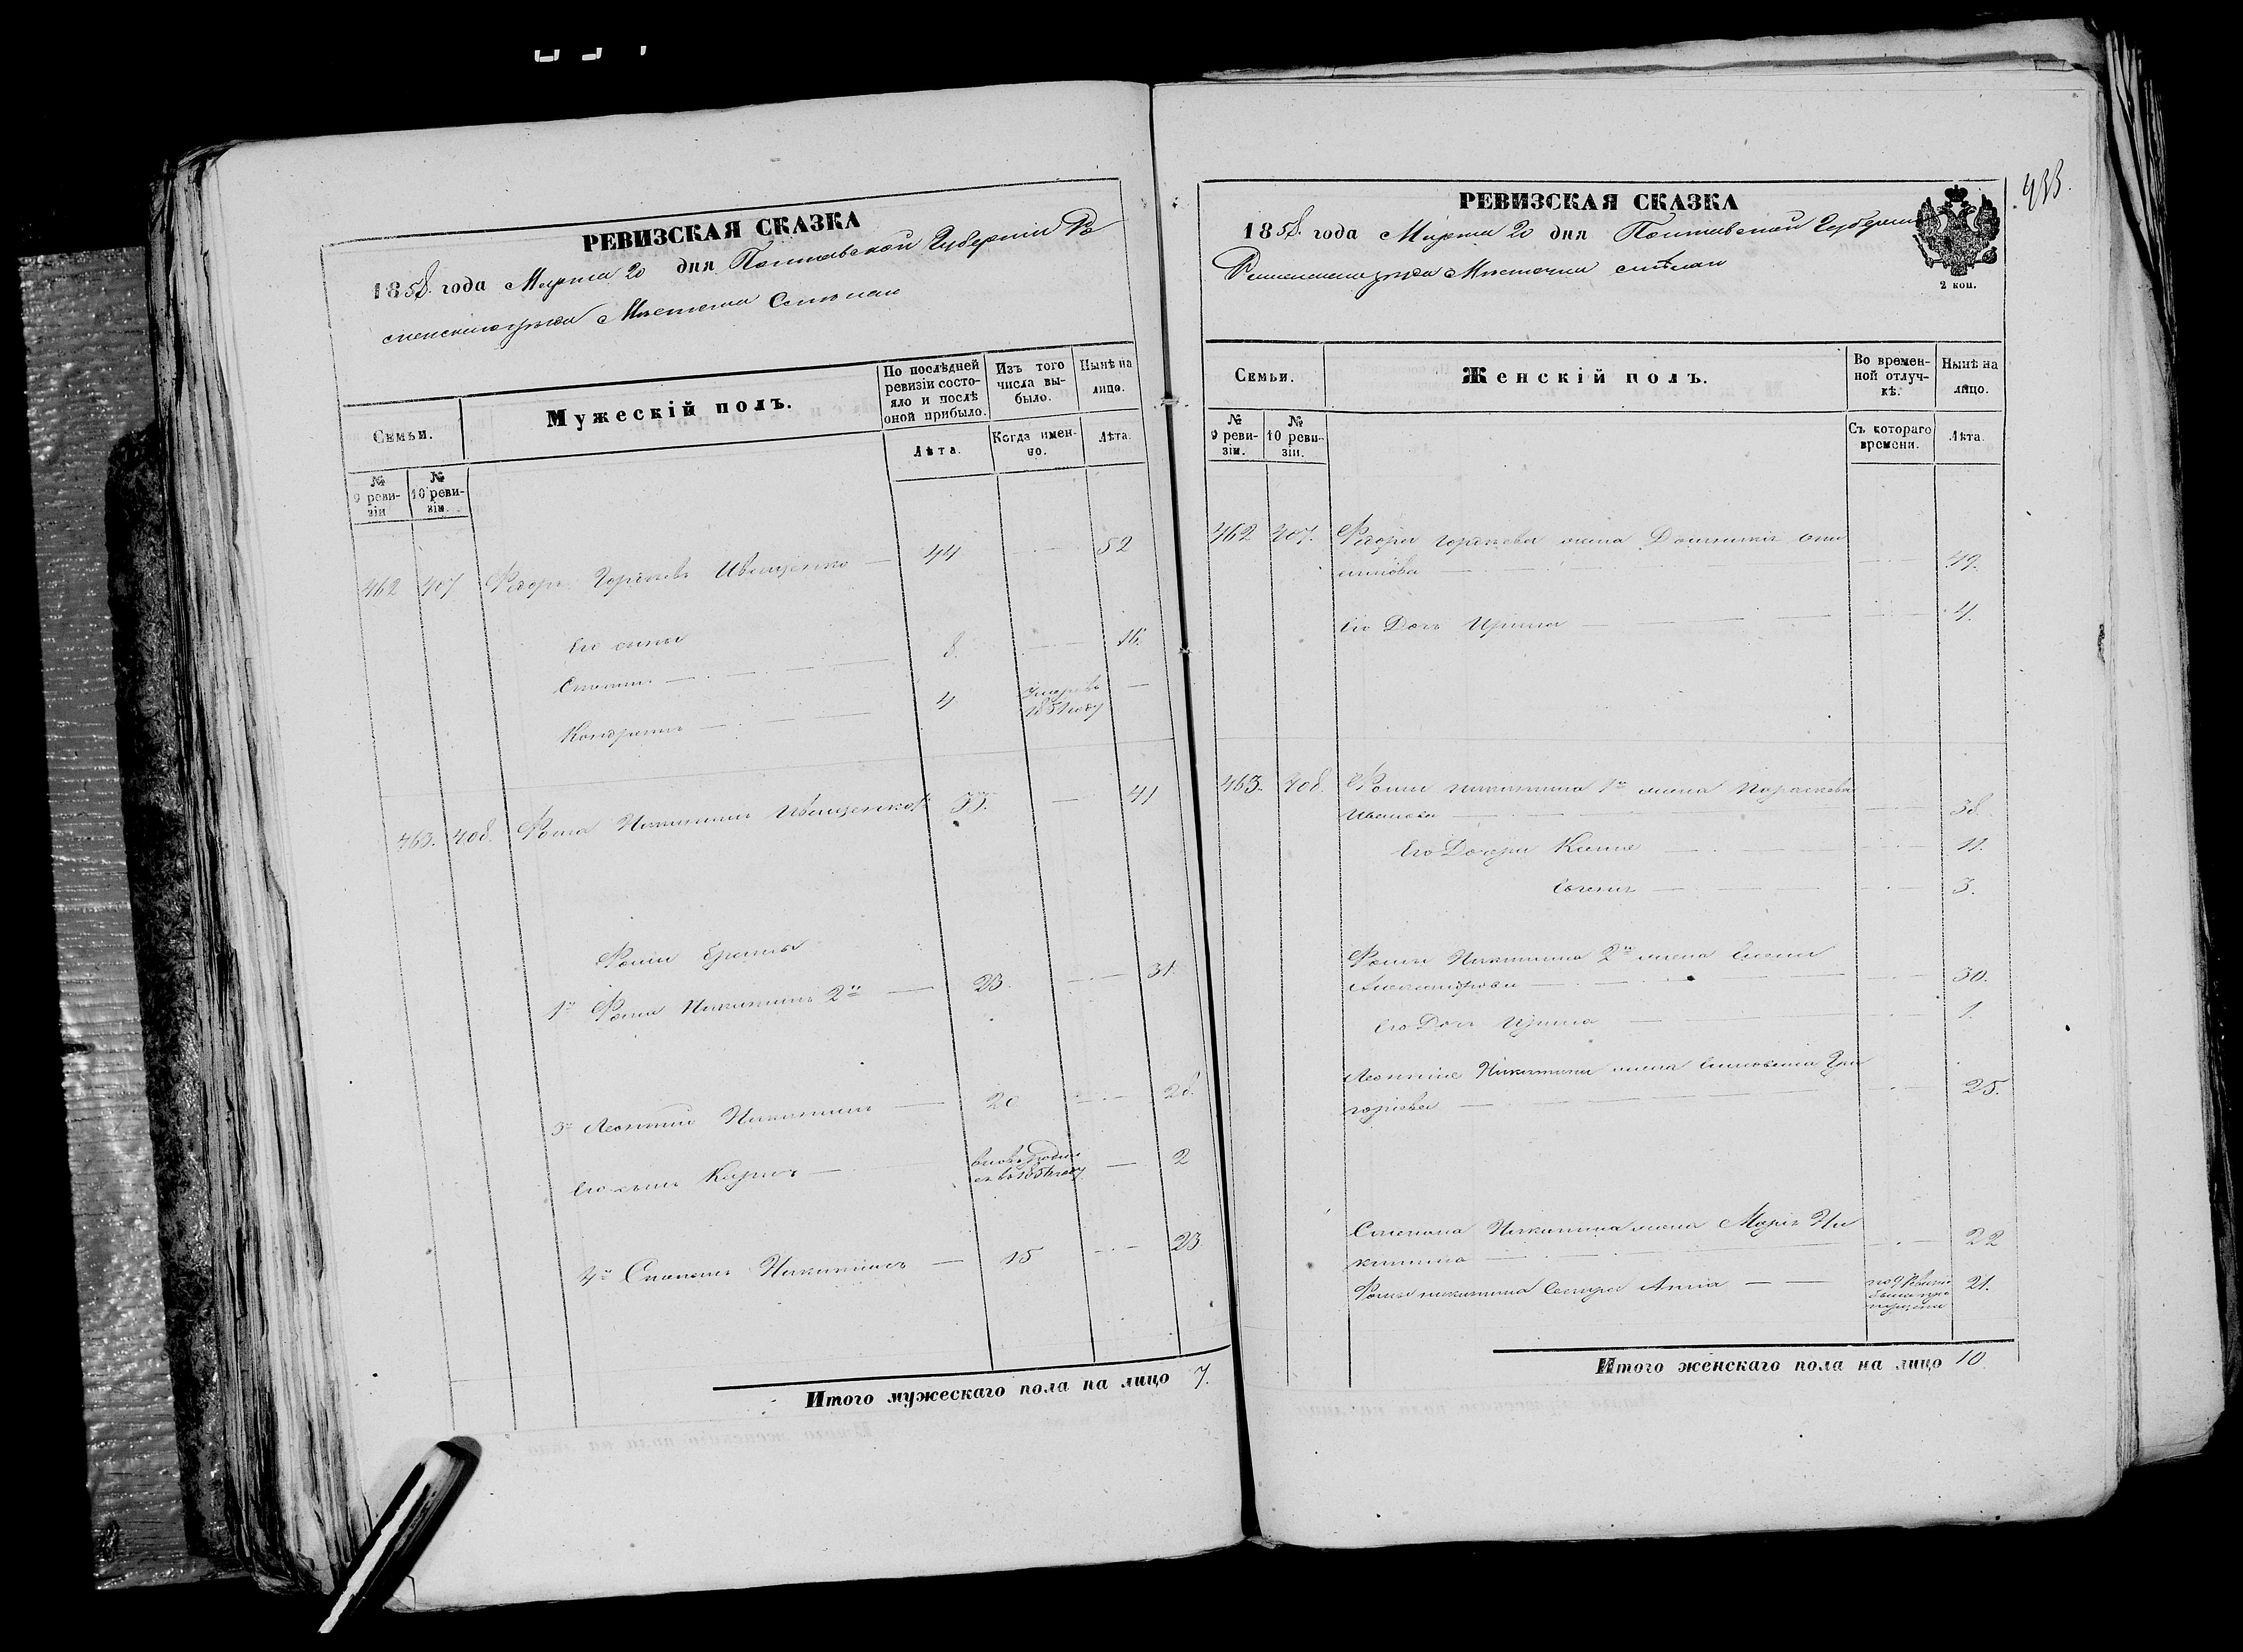 РЕВИЗСКАЯ СКАЗКА
1858. года Марта 20 дня Полтавской Губерніи Ро
менскаго уезда Местечка Смелаго
Семьи.
Мужескій полъ.
По послѣдней ревизіи состояло и послѣ оной прибыло.
Изъ того числа выбыло.
Нынѣ на лицо.
№ 9 ревизіи
№ 10 ревизіи.
Лѣта.
Когда именно.
Лѣта.
462 407 Федоръ Іовщенко 44 52
Его сыны
Степанъ 8. 16.
Кондратъ 4 Умеръ въ 1851 году
463. 408. Фома Никитинъ 33. 41
Фомы братья
1й Фома Никитинъ 2й 23. 31.
3й Леонтій Никитинъ 20 28.
Его сынъ Карпъ 2
4й Степанъ Никитинъ 15 23.
Итого мужескаго пола на лицо 7.
РЕВИЗСКАЯ СКАЗКА
433.
1858. года Марта 20 дня Полтавской Губерніи
Роменскаго уезда Местечка смѣлаго
2 коп.
Семьи.
Женскій полъ.
Во временной отлучкѣ.
Нынѣ на лицо.
№ 9 ревизіи.
№ 10 ревизіи.
Съ котораго времени.
Лѣта.
462 407. Федора жена Домникія 
49.
Его Дочь Ирина 4.
463. 408. Фомы Никитина 1го жена Параскева
Иванова 38.
Его Дочери Ксенія 11.
Евгенія 3.
Фомы Никитина 2го жена Елена
Александрова 30.
Его Дочь Ирина 1.
Леонтія Никитина жена Елисавета Гри
горіева 25.
Степана Никитина жена Марія Ни
китина 22
Фомы никитина Сестра Анна по 9 Ревизіи была пропущена 21.
Итого женскаго пола на лицо 10